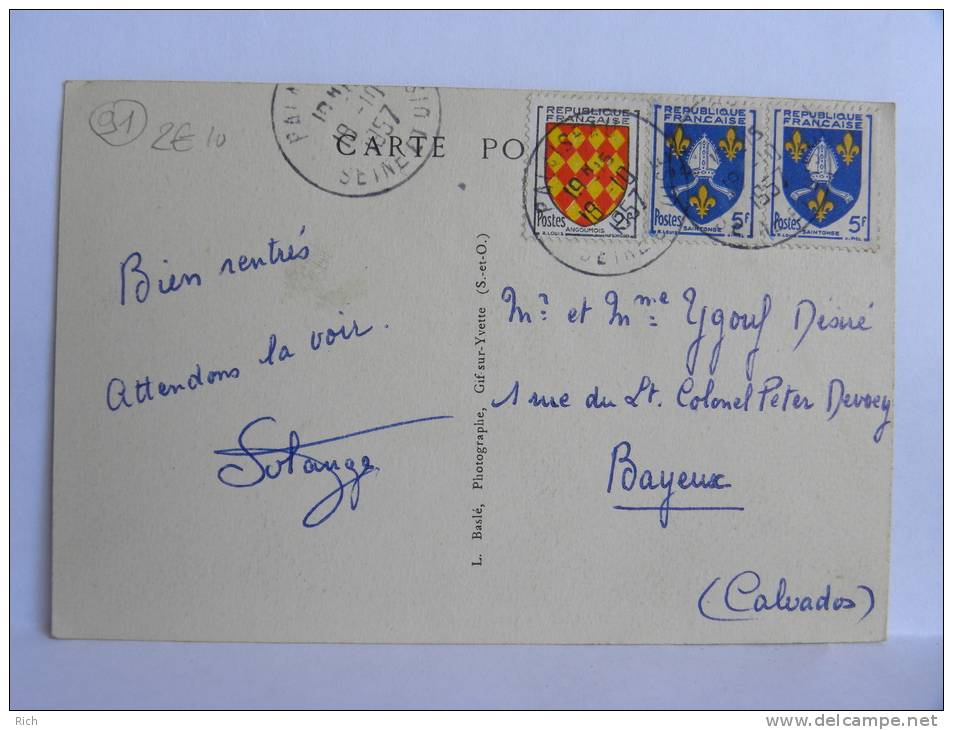 91
2€10
CARTE PO
PALAISEAU
SEINE
19 H
18 -10
1957
REPUBLIQUE
FRANCAISE
Postes
ANGOUMOIS
REPUBLIQUE
FRANCAISE
Postes 5F
SAINTONGE
REPUBLIQUE
FRANCAISE
Postes 5F
SAINTONGE
Bien rentrés
Attendons la voir.
Solange
L. Baslé, Photographe, Gif-sur-Yvette (S.-et-O.)
Mr et Mme Ygouf Désiré
1 rue du Lt. Colonel Peter Devoey
Bayeux
(Calvados)
Rich
www.delcampe.net